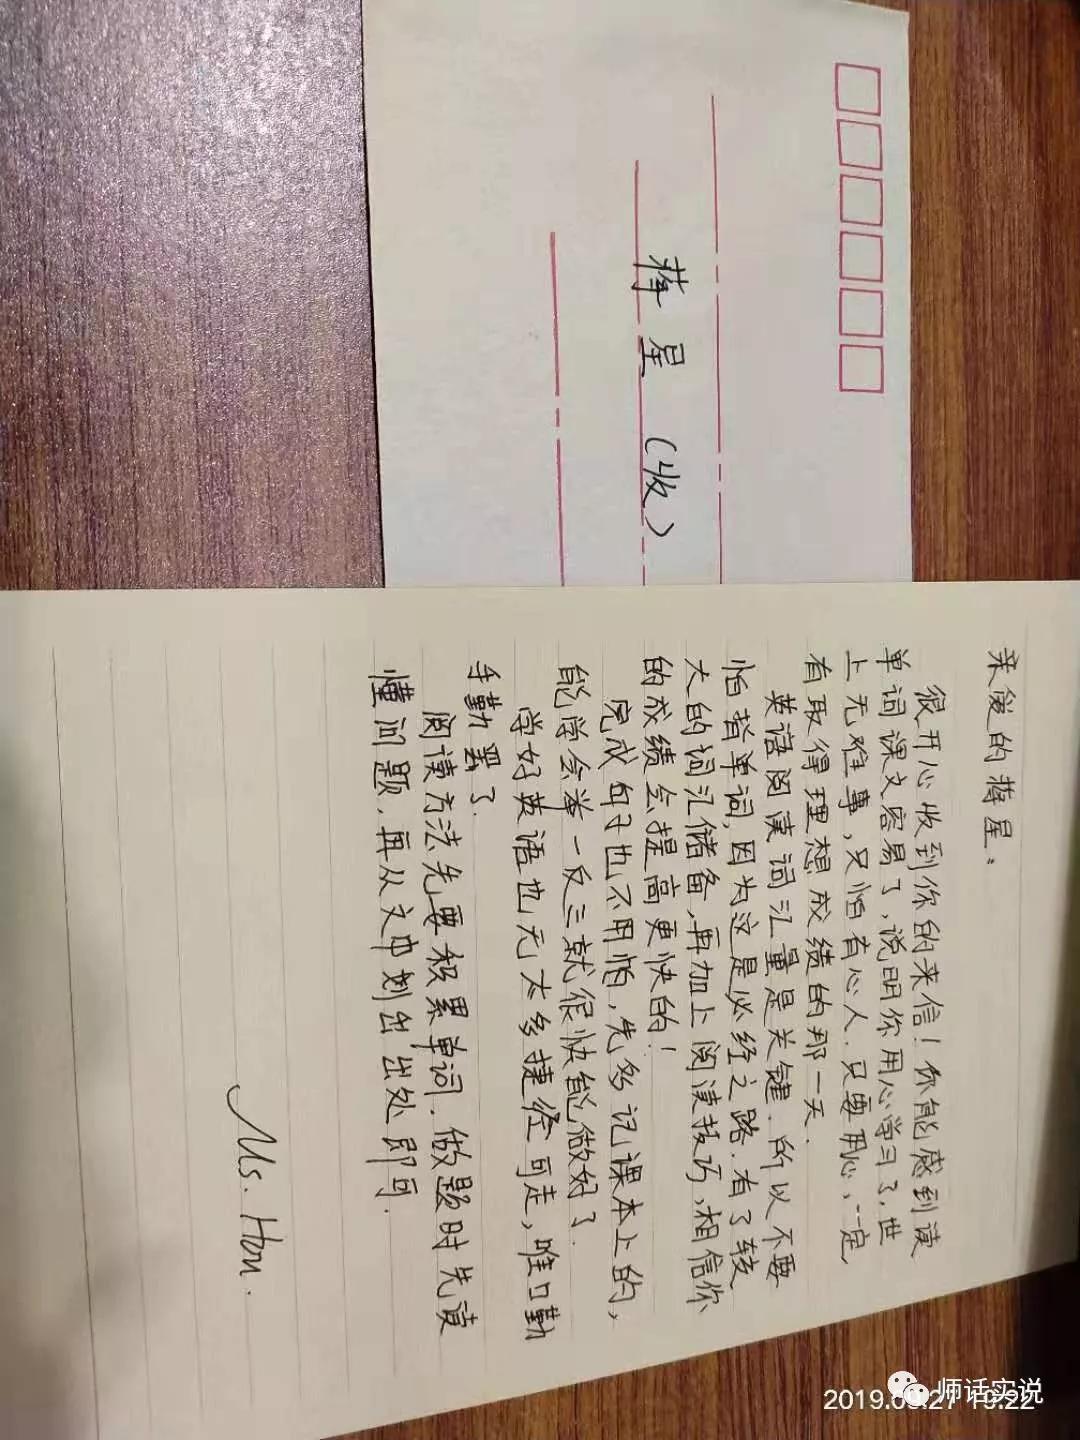 蒋星(收)
亲爱的蒋星:
很开心收到你的来信!你能感到读
单词课文容易了,说明你用心学习了,世
上无难事,只怕有心人.只要用心,一定
有取得理想成绩的那一天.
英语阅读词汇量是关键.所以不要
怕背单词,因为这是必经之路.有了较
大的词汇储备,再加上阅读技巧,相信你
的成绩会提高更快的!
完成句子也不用怕,先多记课本上的,
能学会举一反三就很快能做好了.
学好英语也无太多捷径可走,唯口勤
手勤罢了.
阅读方法先要积累单词.做题时先读
懂问题,再从文中划出出处即可.
Ms. Hou.
师话实说
19:22